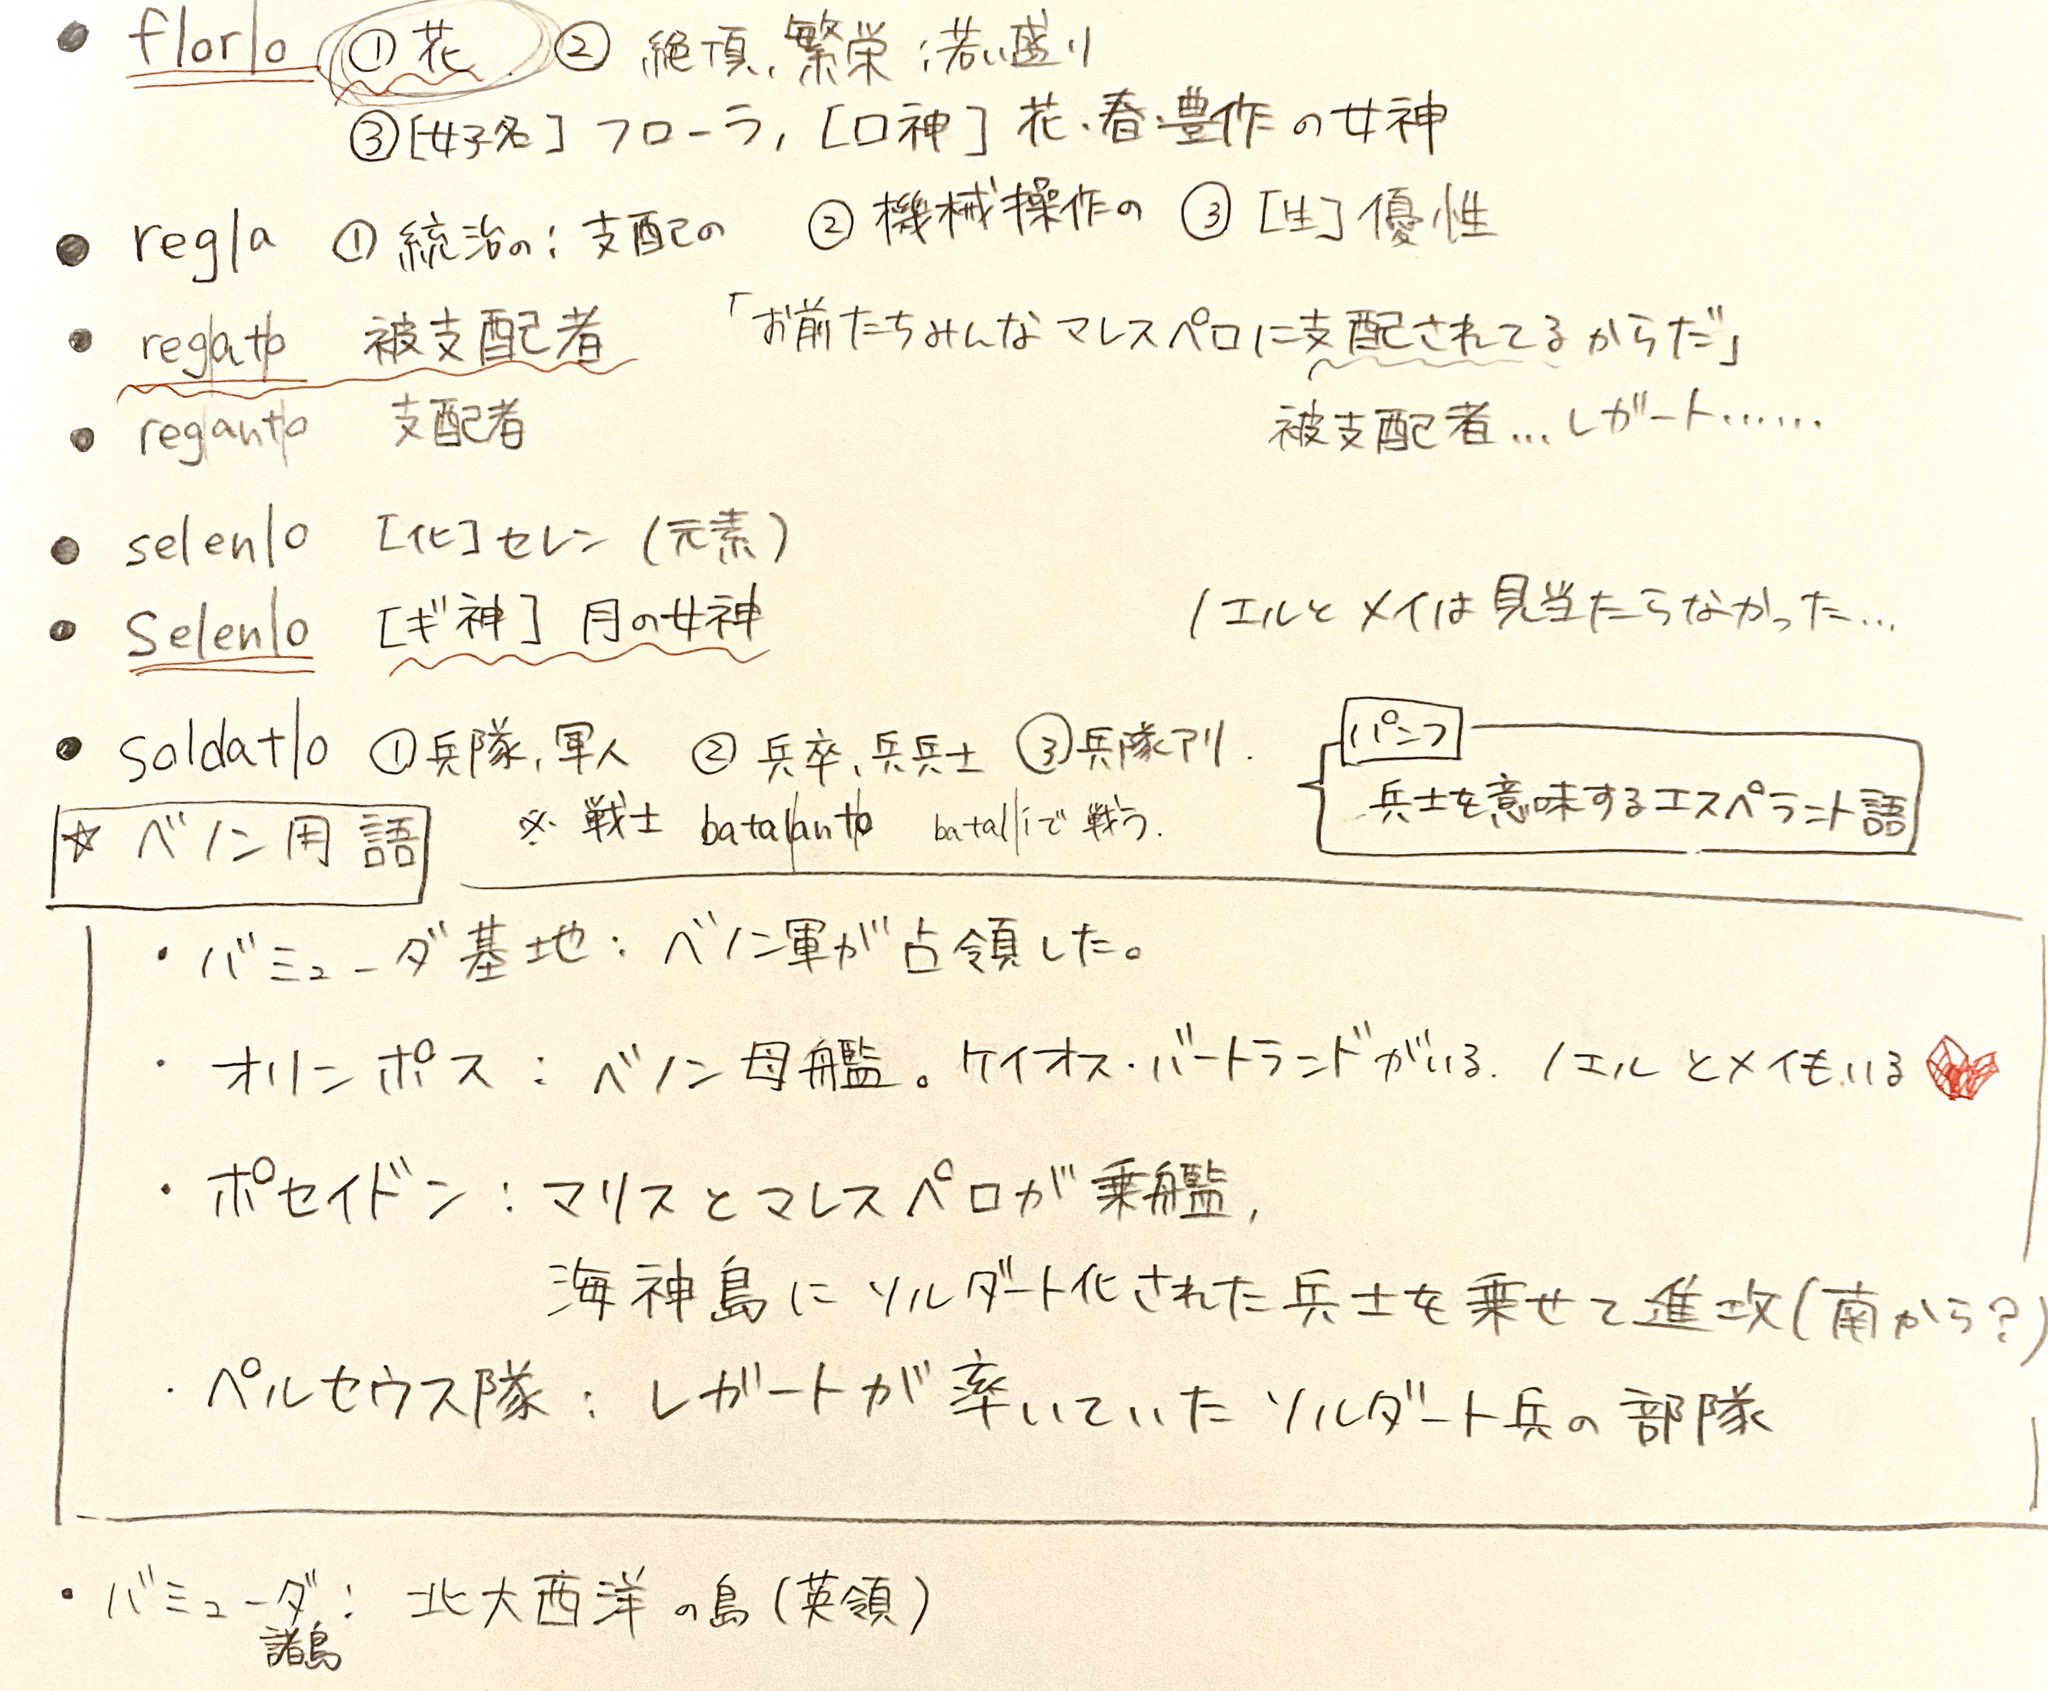 ● flor|o ①花 ② 絶頂、繁栄;若い盛り
③[女子名] フローラ, [ロ神] 花・春・豊作の女神
● reg|a ①統治の;支配の ②機械操作の ③[生]優性
● reg|at|o 被支配者 「お前たちみんなマレスペロに支配されてるからだ」
● reg|ant|o 支配者 被支配者…レガート……
● selen|o [化]セレン(元素)
● Selen|o [ギ神] 月の女神 ノエルとメイは見当たらなかった…
● soldat|o ①兵隊,軍人 ②兵卒、兵兵士 ③兵隊アリ.
パンフ
兵士を意味するエスペラント語
※戦士 batal|ant|o batal|iで戦う.
☆ベノン用語
・バミューダ基地:ベノン軍が占領した。
・オリンポス:ベノン母艦。ケイオス・バートランドがいる.ノエルとメイもいる
・ポセイドン:マリスとマレスペロが乗艦,
海神島にソルダート化された兵士を乗せて進攻(南から?)
・ペルセウス隊:レガートが率いていたソルダート兵の部隊
・バミューダ諸島:北大西洋の島(英領)